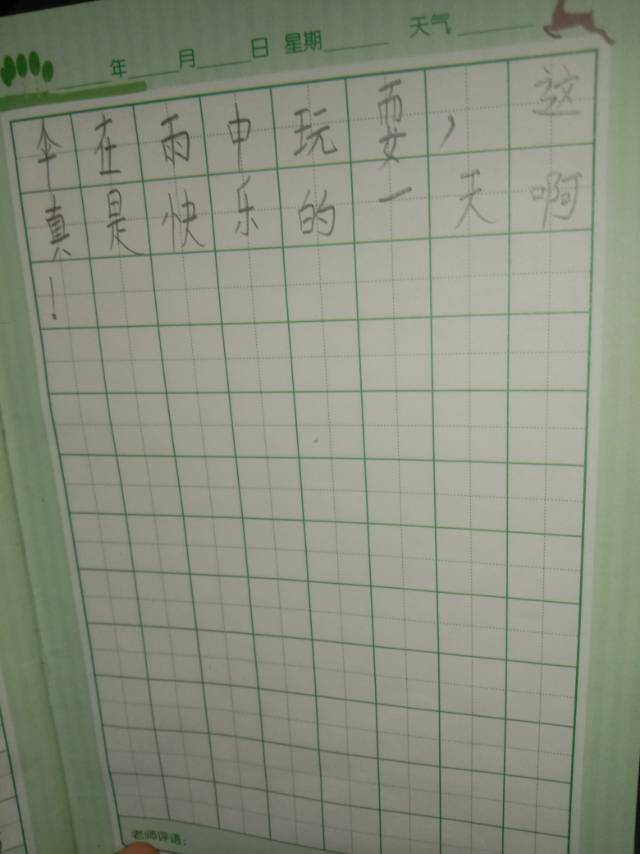 年 月 日 星期 天气
伞在雨中玩耍，这
真是快乐的一天啊
！
老师评语：